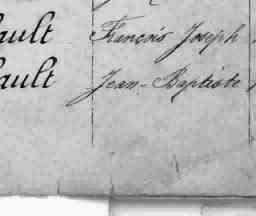 ault François Joseph
ault Jean-Baptiste